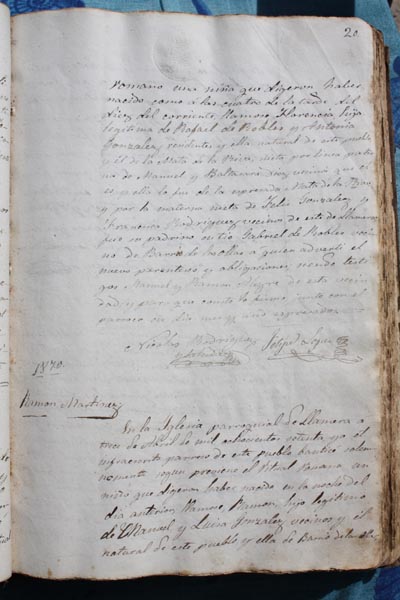 20.
romano una niña que digeron haber
nacido como a las cuatro de la tarde del
diez del corriente llamose Florencia hija
legitima de Rafael de Robles y Antonia
Gonzalez, residentes, y ella natural de este pueblo
y él de la Mata de la Riva, nieta por linea pater
na de Manuel y Baltasara Diez, vecinos que
y ella lo fue de la espresada Mata de la Riva
y por la materna nieta de Felix Gonzalez, y
Francisca Rodriguez, vecinos de este de Llamera
fue su padrino su tio Gabriel de Robles veci
no de Barrio de a quien advertí el
nuevo parentesco y obligaciones, siendo testi
gos Manuel y Ramon de esta vecin
dad, y para que conste lo firmo junto con el
parroco en dia mes y año espresados
Nicolas Rodriguez
1870.
Ramon Martinez
En la Iglesia parroquial de Llamera a
tres de Abril de mil ochocientos setenta yo el
infraescrito parroco de este pueblo bautice solem
nemente segun previene el Ritual Romano un
niño que digeron haber nacido en la noche del
dia anterior llamose Ramon, hijo legitimo
de Manuel y Luisa Gonzalez, vecinos y él
natural de este pueblo y ella de Barrio de